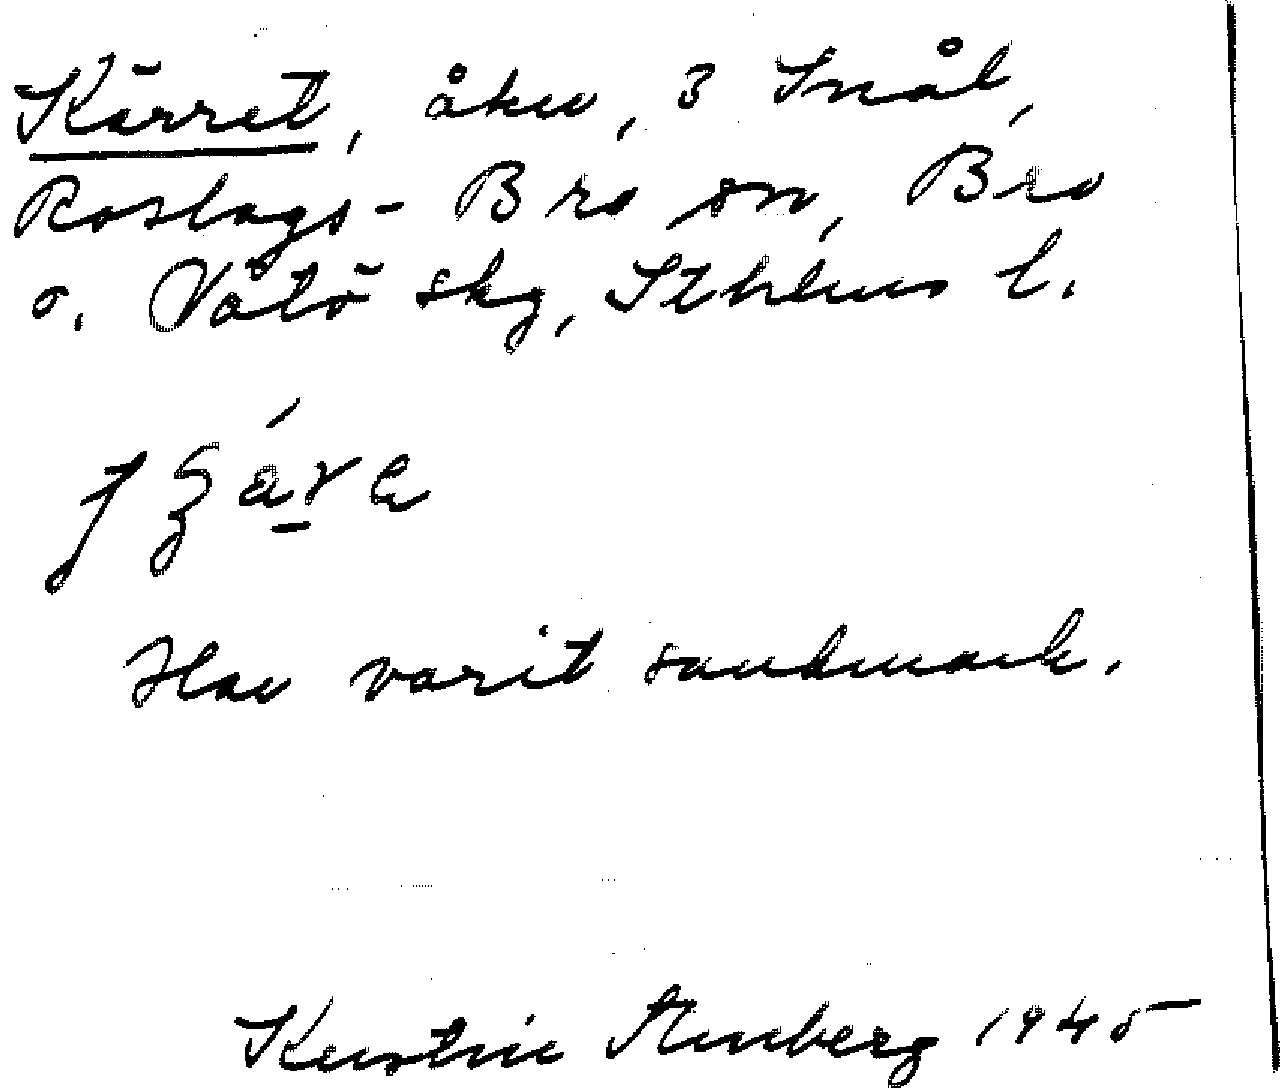 Kärret, åker, 3 Snål,
Roslags-Bro sn, Bro
o. Vätö skg, Sthlms l.
Har varit sankmark.
Kerstin Stenberg 1945